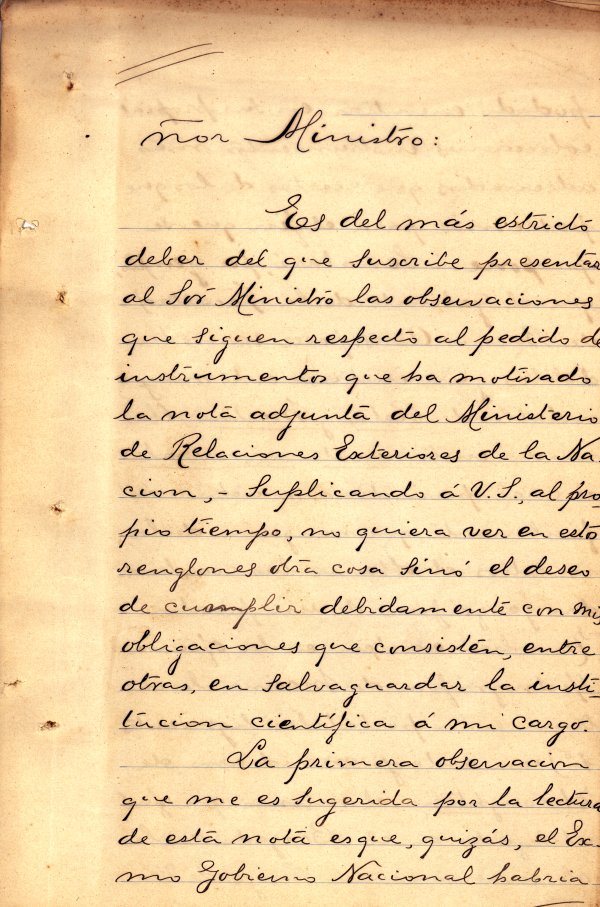 ñor Ministro:
Es del más estricto
deber del que suscribe presentar
al Sor Ministro las observaciones
que siguen respecto al pedido de
instrumentos que ha motivado
la nota adjunta del Ministerio
de Relaciones Exteriores de la Na-
cion, - Suplicando á V.S., al pro-
pio tiempo, no quiera ver en esto
renglones otra cosa sinó el deseo
de cumplir debidamente con mis
obligaciones que consistén, entre
otras, en salvaguardar la insti-
tucion científica á mi cargo.
La primera observacion
que me es sugerida por la lectura
de esta nota es que, quizás, el Ex-
mo Gobierno Nacional habria